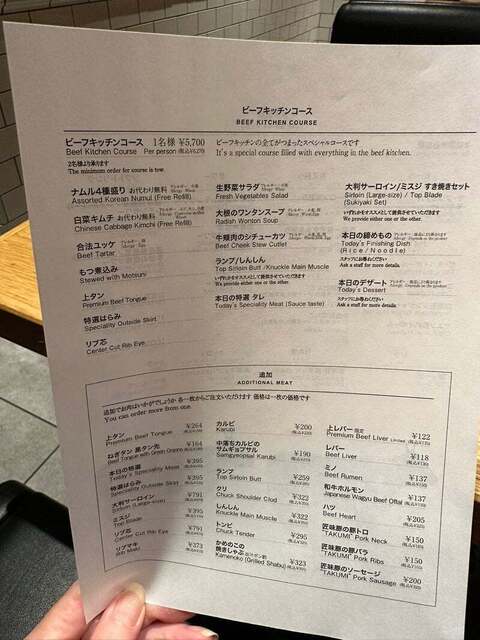 ビーフキッチンコース
BEEF KITCHEN COURSE
ビーフキッチンコース 1名様 ¥5,700
Beef Kitchen Course Per person
2名様より承ります
The minimum order for course is tow.
ビーフキッチンの全てがつまったスペシャルコースです
It's a special course filled with everything in the beef kitchen.
ナムル4種盛り お代わり無料
Assorted Korean Numul (Free Refill)
白菜キムチ お代わり無料
Chinese Cabbage Kimchi (Free Refill)
合法ユッケ
Beef Tartar
もつ煮込み
Stewed with Motsuni
上タン
Premium Beef Tongue
特選はらみ
Speciality Outside Skirt
リブ芯
Center Cut Rib Eye
生野菜サラダ
Fresh Vegetables Salad
大根のワンタンスープ
Radish Wonton Soup
牛頬肉のシチューカツ
Beef Cheek Stew Cutlet
ランプ/しんしん
Top Sirloin Butt / Knuckle Main Muscle
いずれかをオススメとして提供させていただきます
We provide either one or the other.
本日の特選 タレ
Today's Speciality Meat (Sauce taste)
大判サーロイン/ミスジ すき焼きセット
Sirloin (Large-size) / Top Blade
(Sukiyaki Set)
いずれかをオススメとして提供させていただきます
We provide either one or the other.
本日の締めもの
Today's Finishing Dish
(Rice / Noodle)
スタッフにお尋ねください
Ask a staff for more details.
本日のデザート
Today's Dessert
スタッフにお尋ねください
Ask a staff for more details.
追加
ADDITIONAL MEAT
追加でお肉はいかがでしょうか 各一枚からご注文いただけます 価格は一枚の価格です
You can order more from one.
上タン ¥264
Premium Beef Tongue
ねぎタン 黒タン先 ¥164
Beef Tongue with Green Onions
本日の特選 ¥395
Today's Speciality Meat
特選はらみ ¥395
Speciality Outside Skirt
大判サーロイン ¥791
Sirloin (Large-size)
ミスジ ¥395
Top Blade
リブ芯 ¥791
Center Cut Rib Eye
リブマキ ¥373
Rib Maki
カルビ ¥200
Karubi
中落ちカルビの
サムギョプサル ¥190
Samgyeopsal Karubi
ランプ ¥259
Top Sirloin Butt
クリ ¥322
Chuck Shoulder Clod
しんしん ¥322
Knuckle Main Muscle
トンビ ¥295
Chuck Tender
かめのこの
焼きしゃぶ ¥323
Kamenoko (Grilled Shabu)
上レバー 限定 ¥122
Premium Beef Liver Limited
レバー ¥118
Beef Liver
ミノ ¥137
Beef Rumen
和牛ホルモン ¥137
Japanese Wagyu Beef Offal
ハツ ¥205
Beef Heart
匠味豚の豚トロ ¥150
"TAKUMI" Pork Neck
匠味豚の豚バラ ¥150
"TAKUMI" Pork Ribs
匠味豚のソーセージ ¥200
"TAKUMI" Pork Sausage